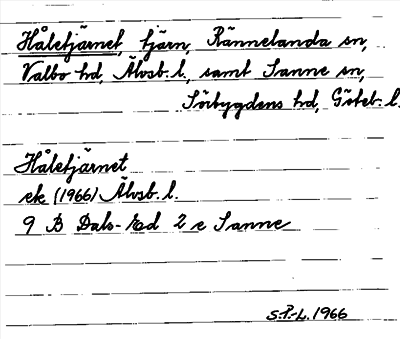 Håletjärnet, tjärn, Rännelanda sn,
Valbo hd, Älvsb. l., samt Sanne sn,
Sörbygdens hd, Göteb. l.
Håletjärnet
ek (1966) Älvsb. l.
9 B Dals-Ed 2 e Sanne
S.P.-L. 1966